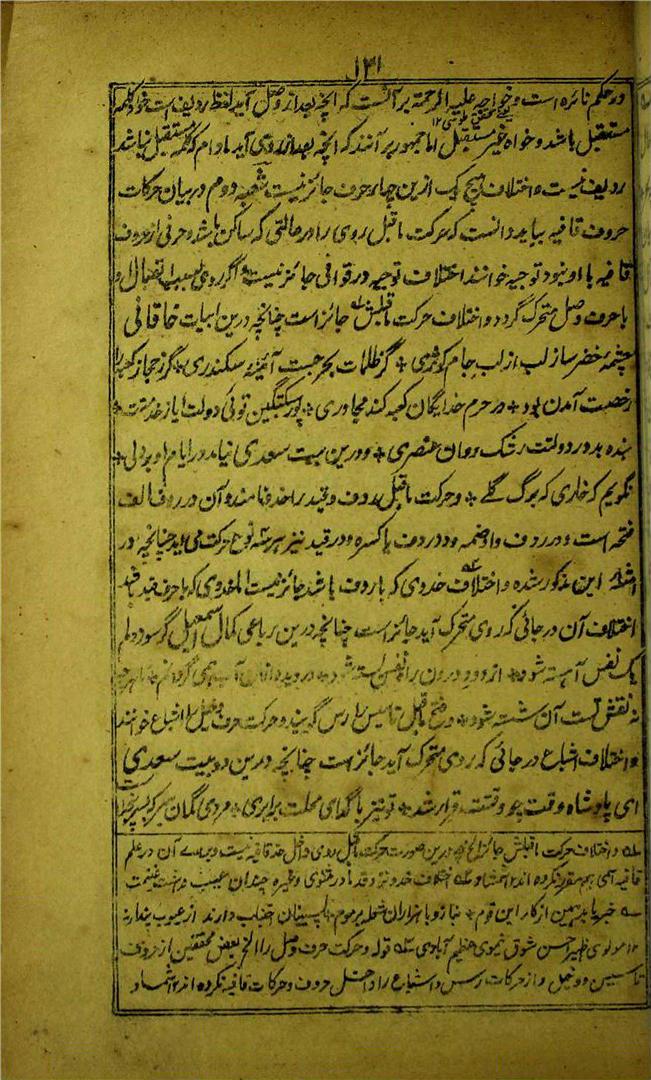 ۱۳۱
در حکم نائره است و خواجه علیه الرحمة بر آنست که انچه بعد از وصل آید لفظ ردیف است خواه کلمه
یعنی محقق طوسی ۱۲
مستقبل باشد و خواه غیر مستقبل اما جمهور بر آنند که انچه بعد از روی آید مادام که کلمه مستقبل نباشد
ردیف نیست و اختلاف هیچ یک ازین چهار حرف جائز نیست شعبه دوم در بیان حرکات
حروف قافیه بباید دانست که حرکت ماقبل روی را در حالتی که ساکن باشد و حرفی از حروف
قافیه با او نبود توجیه خوانند اختلاف توجیه در قوافی جائز نیست و اگر روی بسبب اتصال او
با حرف وصل متحرک گردد و اختلاف حرکت ماقبلش جائز است چنانچه درین ابیات خاقانی
چشمه خضر ساز لب از لب جام کوثری ٭ کز ظلمات بحر جست آئینه سکندری ٭ گر ز حجاز کعبه را
رخصت آمدن بود ٭ در حرم خدایگان کعبه کند مجاوری ٭ پور سبکتگین توئی دولت ایاز خدمتت ٭
بنده بدور دولتت رشک روان عنصری ٭ و درین بیت سعدی نیاید در ایام او بر دلی ٭
نگویم که خاری که برگ گلے ٭ و حرکت ماقبل ردف و قید را حذو نامند و آن در ردف الف
فتحه است و در ردف واو ضمه و در ردف یا کسره و در قید نیز هر سه نوع حرکت می آید چنانچه در
امثله این مذکور شده و اختلاف حذوی که با ردف باشد جائز نیست اما حذوی که با حرف قید باشد
اختلاف آن در جائی که روی متحرک آید جائز است چنانچه درین رباعی کمال اسمعیل گر سوز دلم
یک نفس آهسته شود ٭ از دود درون راه نفس بسته شود ٭ در دیده ازان آب همی گردانم ٭ تا هر چه
نه نقش تست آن شسته شود ٭ و فتح ماقبل تاسیس را رس گویند و حرکت حرف دخیل را اشباع خوانند
و اختلاف اشباع در جائی که روی متحرک آید جائز است چنانچه درین دو بیت سعدی
ای پادشاه وقت چو وقتت فرا رسد ٭ تو نیز با گدای محلت برابری ٭ مردی گمان مبر که بسر پنجه
و اختلاف حرکت ماقبلش جائز الخ درین صورت حرکت ماقبل روی داخل حد قافیه نیست و برای آن در علم
قافیه اسمی هم مقرر نکرده اند ۱۲ شمشاد اختلاف حذو نزد قدما در مثنوی و غیره چندان عیب نیست
این قوم
۱۲ مولوی ظهیر احسن شوق نیموی عظیم آبادی قوله و حرکت حرف وصل را الخ بعض محققین از حروف
تاسیس و دخیل و از حرکات رس و اشباع را داخل حروف و حرکات قافیه نکرده اند ۱۲ شمشاد